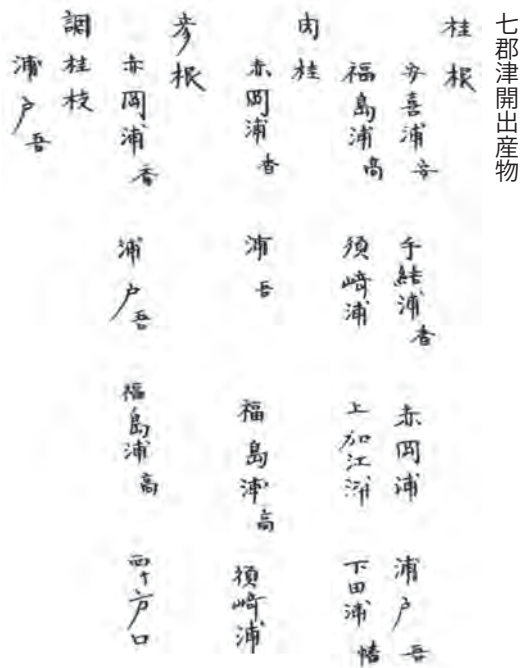 七郡津開出産物
桂根
安喜浦安 手結浦香 赤岡浦 浦戸吾
福島浦高 須崎浦 上加江浦 下田浦幡
肉桂
赤岡浦香 浦吾 福島浦高 須崎浦
彦根
赤岡浦香 浦戸吾 福島浦高 四十万口
調桂枝
浦戸吾